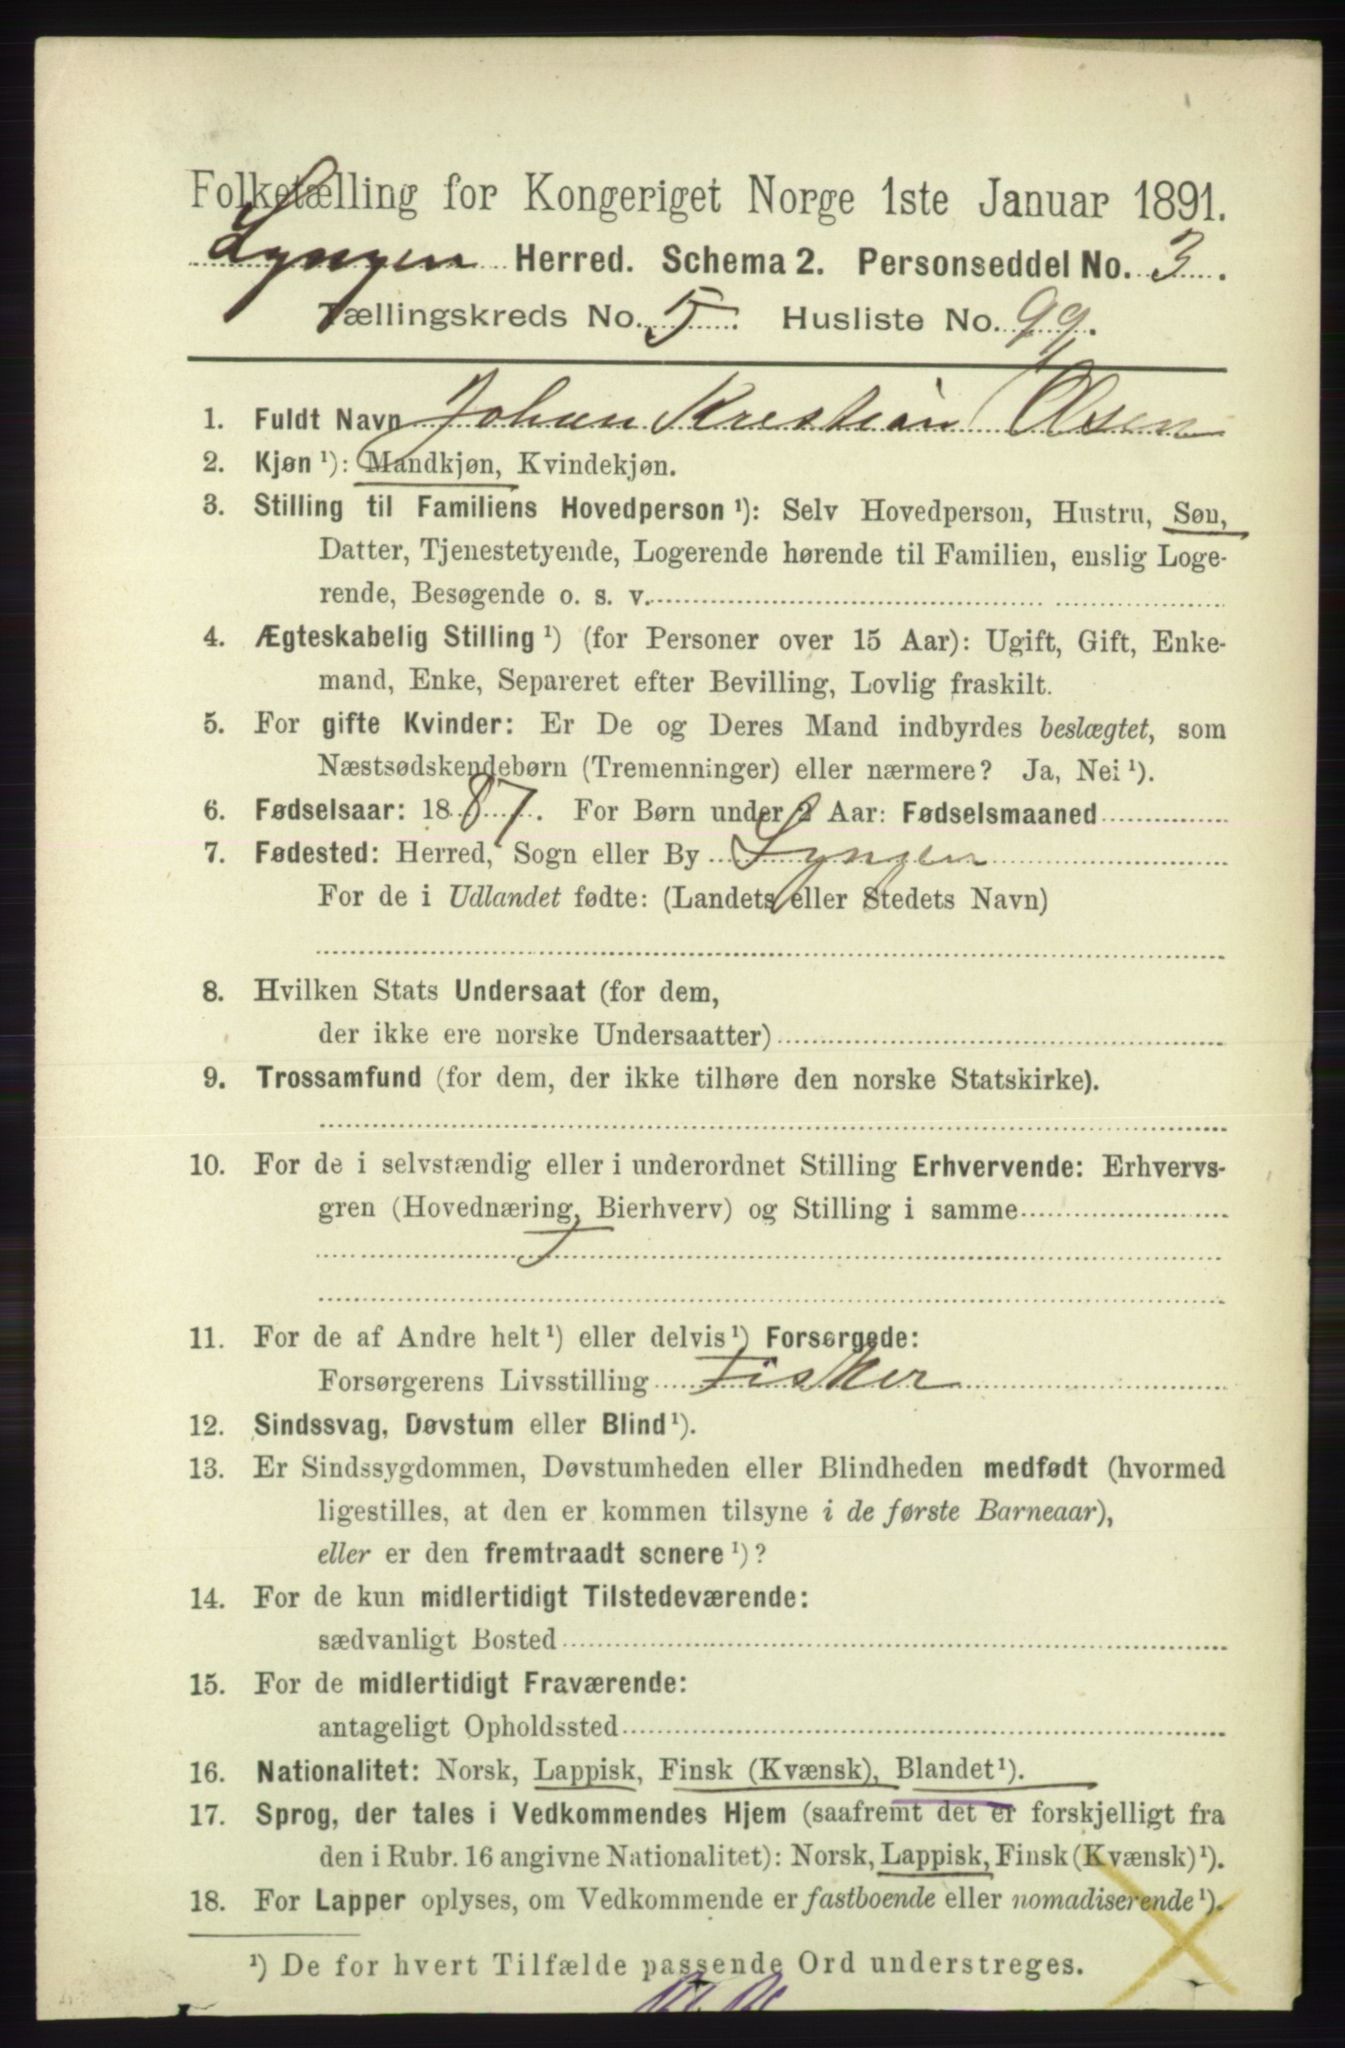 Folketælling for Kongeriget Norge 1ste Januar 1891.
Lyngen Herred. Schema 2. Personseddel No. 3.
Tællingskreds No. 5. Husliste No. 99.
1. Fuldt Navn Johan Kristian Olsen
2. Kjøn ¹): Mandkjøn, Kvindekjøn.
3. Stilling til Familiens Hovedperson ¹): Selv Hovedperson, Hustru, Søn,
Datter, Tjenestetyende, Logerende hørende til Familien, enslig Loge-
rende, Besøgende o. s. v.
4. Ægteskabelig Stilling ¹) (for Personer over 15 Aar): Ugift, Gift, Enke-
mand, Enke, Separeret efter Bevilling, Lovlig fraskilt.
5. For gifte Kvinder: Er De og Deres Mand indbyrdes beslægtet, som
Næstsødskendebørn (Tremenninger) eller nærmere? Ja, Nei ¹).
6. Fødselsaar: 1887. For Børn under 2 Aar: Fødselsmaaned
7. Fødested: Herred, Sogn eller By Lyngen
For de i Udlandet fødte: (Landets eller Stedets Navn)
8. Hvilken Stats Undersaat (for dem,
der ikke ere norske Undersaatter)
9. Trossamfund (for dem, der ikke tilhøre den norske Statskirke).
10. For de i selvstændig eller i underordnet Stilling Erhvervende: Erhvervs-
gren (Hovednæring, Bierhverv) og Stilling i samme
11. For de af Andre helt ¹) eller delvis ¹) Forsørgede:
Forsørgerens Livsstilling Fisker
12. Sindssvag, Døvstum eller Blind ¹).
13. Er Sindssygdommen, Døvstumheden eller Blindheden medfødt (hvormed
ligestilles, at den er kommen tilsyne i de første Barneaar),
eller er den fremtraadt senere ¹)?
14. For de kun midlertidigt Tilstedeværende:
sædvanligt Bosted
15. For de midlertidigt Fraværende:
antageligt Opholdssted
16. Nationalitet: Norsk, Lappisk, Finsk (Kvænsk), Blandet ¹).
17. Sprog, der tales i Vedkommendes Hjem (saafremt det er forskjelligt fra
den i Rubr. 16 angivne Nationalitet): Norsk, Lappisk, Finsk (Kvænsk) ¹).
18. For Lapper oplyses, om Vedkommende er fastboende eller nomadiserende ¹).
¹) De for hvert Tilfælde passende Ord understreges.